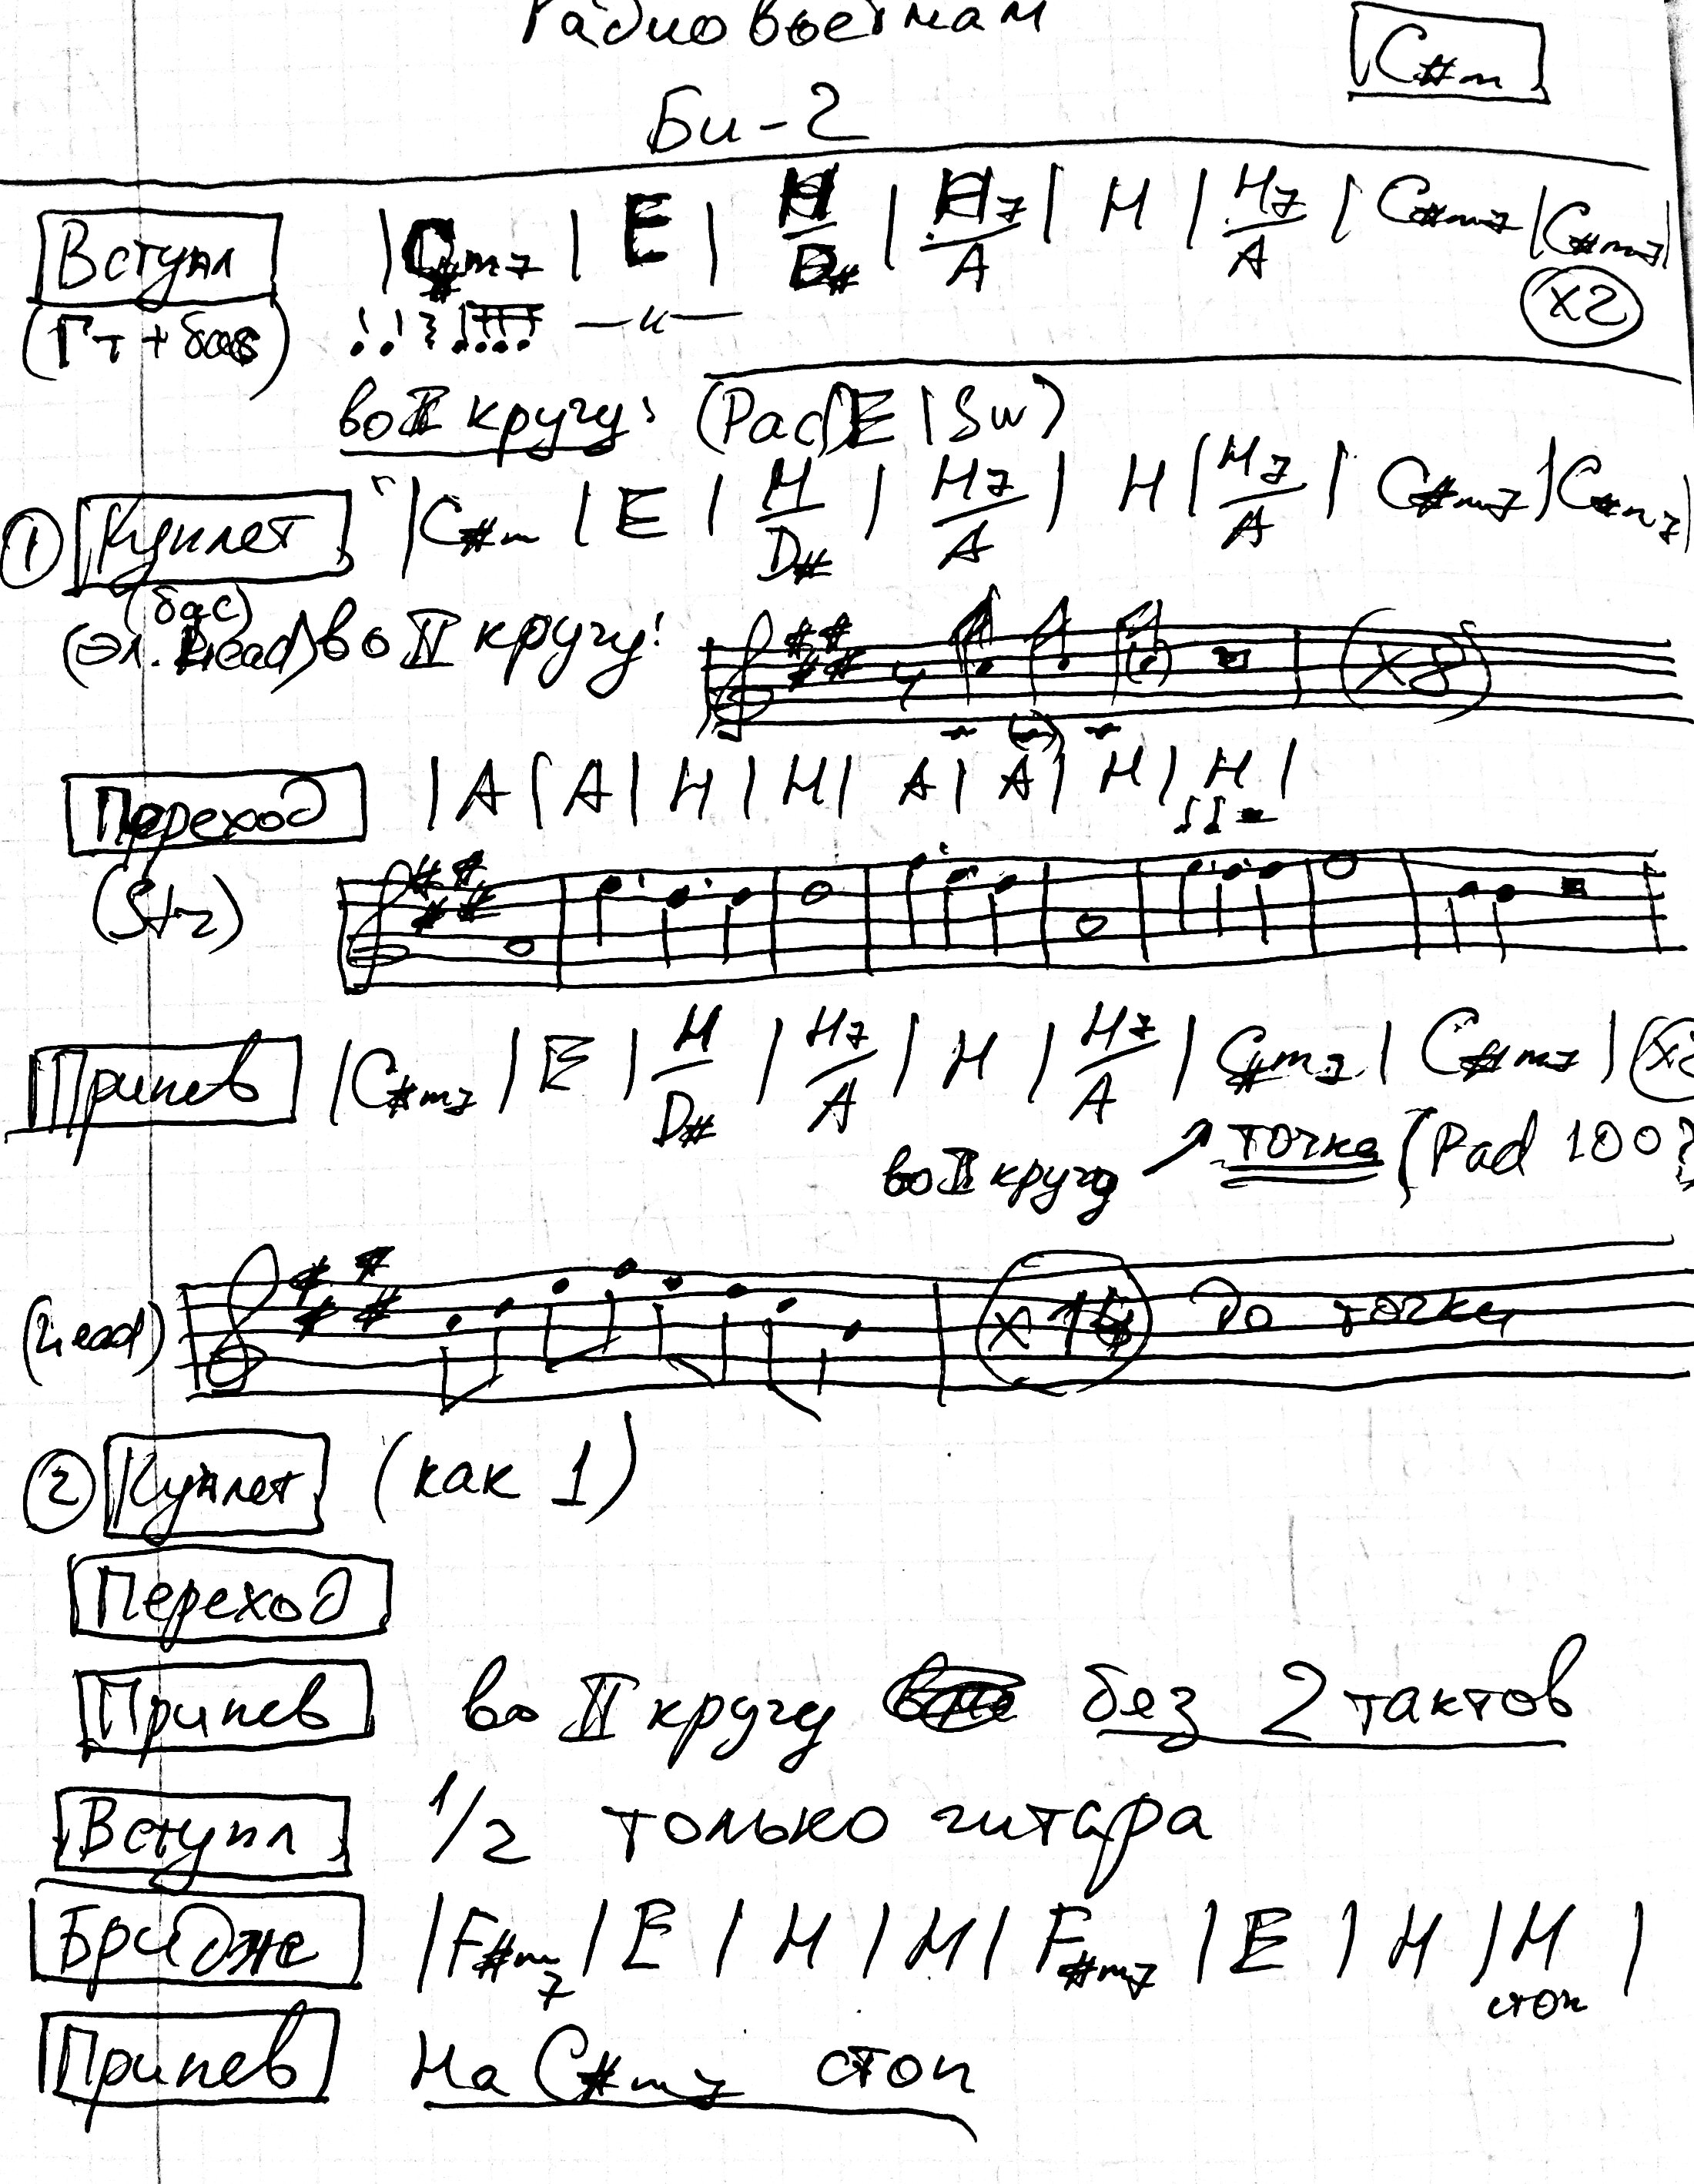 Радио Вьетнам
C#m
Би-2
Вступл |C#m7 | E | H/D# | H7/A | H | H7/A | C#m7 | C#m7|
(Гт + бас) —"— x2
во II кругу: (Pad E | Sw)
① Куплет |C#m | E | H/D# | H7/A | H | H7/A | C#m7 | C#m7|
(бас)
(Эл. Lead) во II кругу! (x8)
Переход | A | A | H | H | A | A | H | H |
(Str)
Припев |C#m7 | E | H/D# | H7/A | H | H7/A | C#m7 | C#m7 |
во II кругу ↗ точка (Pad 100
(Lead) до точки
② Куплет (как 1)
Переход
Припев во II кругу без 2 тактов
Вступл 1/2 только гитара
Бридж |F#m7 | E | H | H | F#m7 | E | H | H |
стоп
Припев На C#m7 стоп